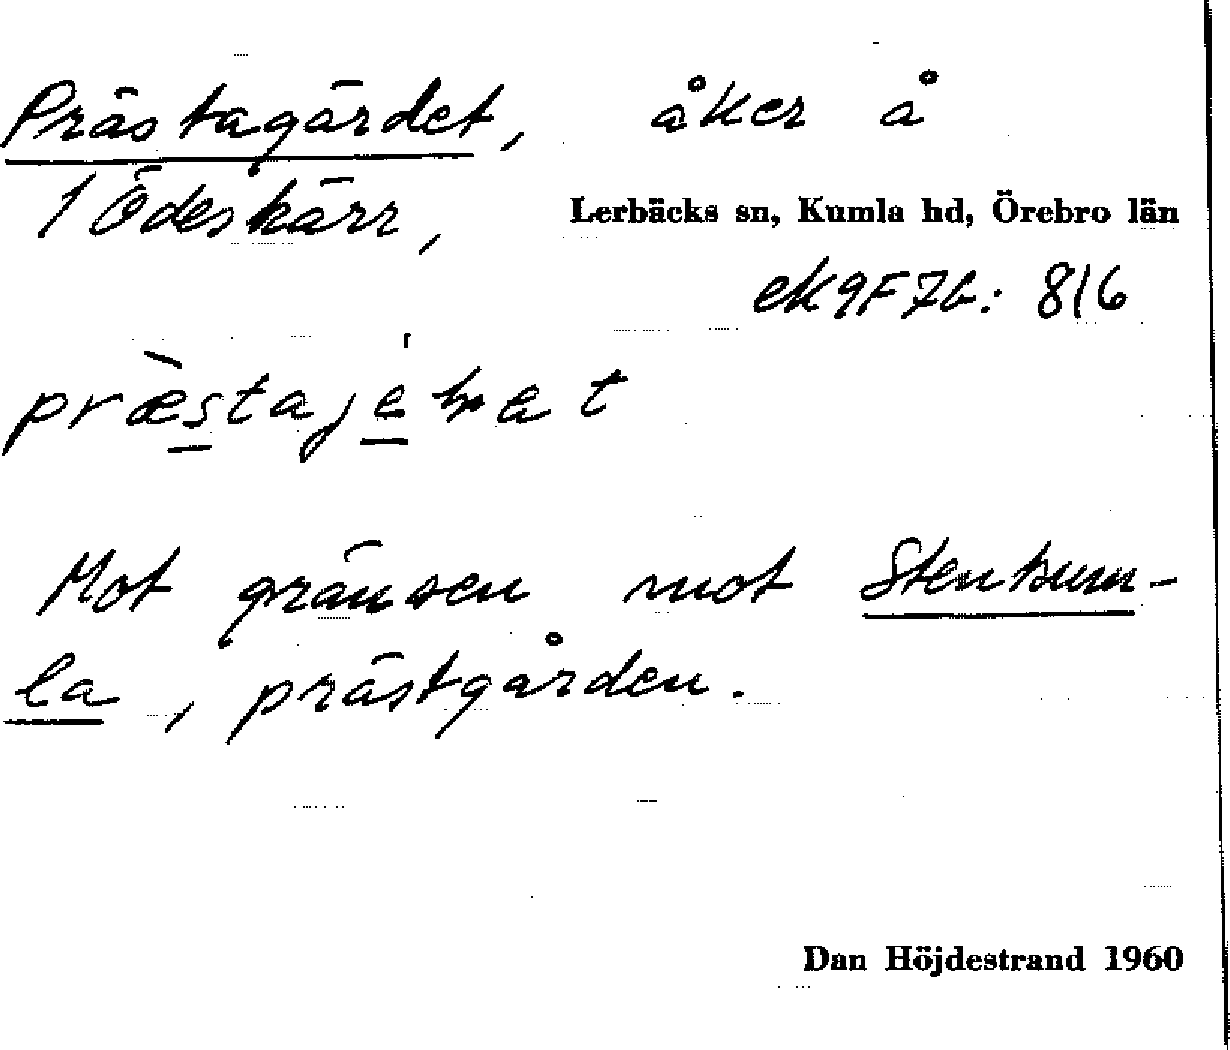 Prästagärdet, åker å
1 Ödeskärr, Lerbäcks sn, Kumla hd, Örebro län
ek 9F7b: 816
Mot gränsen mot Stenkum-
la, prästgården.
Dan Höjdestrand 1960